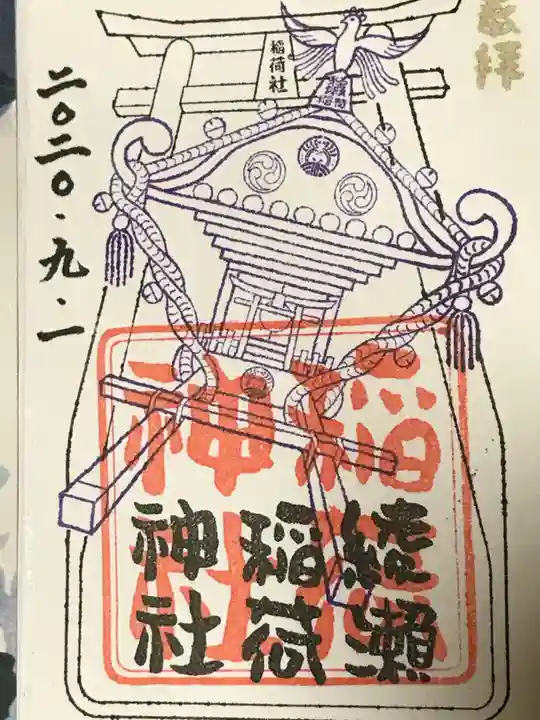 奉拝
稲荷社
二〇二〇・九・一
綾瀬
稲荷
神社